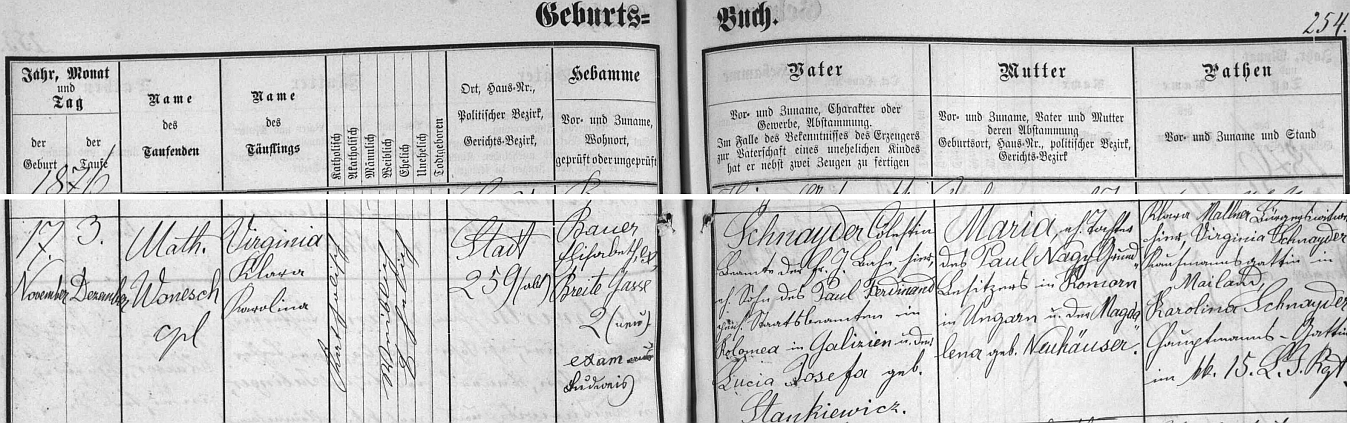 Geburts=
Buch.
254.
Jahr, Monat
und
Tag
der
Geburt
der
Taufe
1876
Name
des
Taufenden
Name
des
Täuflings
Katholisch
Akatholisch
Männlich
Weiblich
Ehelich
Unehelich
Todtgeboren
Ort, Haus-Nr.,
Politischer Bezirk,
Gerichts-Bezirk,
Hebamme
Vor- und Zuname,
Wohnort,
geprüft oder ungeprüft
Vater
Vor- und Zuname, Charakter oder
Gewerbe, Abstammung.
Im Falle des Bekenntnisses des Erzeugers
zur Vaterschaft eines unehelichen Kindes
hat er nebst zwei Zeugen zu fertigen
Mutter
Vor- und Zuname, Vater und Mutter
deren Abstammung
Geburtsort, Haus-Nr., politischer Bezirk,
Gerichts-Bezirk
Pathen
Vor- und Zuname und Stand
17.
November
3.
Dezember
Math.
Wonesch
cpl
Virginia
Klara
Karolina
katholisch
weiblich
ehelich
Stadt
259 (alt)
Bauer
Elisabeth,
Breite Gasse
2 (neu)
exam
Budweis)
Schnayder Cölestin
Beamte der Fr. J. Bahn, hier,
eh. Sohn des Paul Ferdinand
Staatsbeamten in
Kolomea in Galizien u. der
Lucia Josefa geb.
Stankiewicz.
Maria, eh. Tochter
des Paul Nagy, Grund-
besitzers in Komorn
in Ungarn u. der Magda
lena geb. Neuhäuser.
Klara Mallner Bürgerswitwe
hier, Virginia Schnayder
Kaufmannsgattin in
Mailand,
Karolina Schnayder
Hauptmanns-Gattin
im kk. 15. L. I. Rgt.